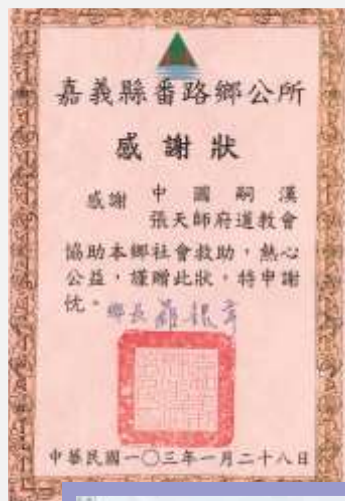 嘉義縣番路鄉公所
感謝狀
感謝 中國嗣漢
張天師府道教會
協助本鄉社會救助，熱心
公益，謹贈此狀，特申謝
忱。鄉長
中華民國一〇三年一月二十八日